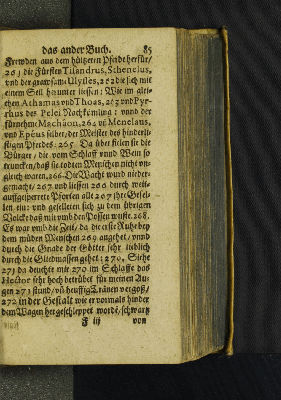 das ander Buch. 85
Frewden aus dem hültzeren Pferde herfür/
261 die Fürsten Tisandrus, Schenelus,
und der grawsam Ulysses, 262 die sich mit
einem Seil herunter liessen: Wie im glei-
chen Athamas und Thoas, 263 und Pyr-
rhus des Pelei Nachkömling: unnd der
fürnehme Machaon, 264 uñ Menelaus,
und Epéus selber, der Meister des hinderli-
stigen Pferdes. 265 Da über fielen sie die
Bürger, die vom Schlaff unnd Wein so
truncken, daß sie todten Menschen nicht un-
gleich waren. 266 Die Wacht wurd nieder-
gemacht/ 267 und liessen durch weit-
auffgesperrete Pforten alle ihre Gesel-
len ein: und geselleten sich zu dem übrigen
Volcke daß mit umb den Possen wuste. 268.
Es war umb die Zeit/ da die erste Ruhe bey
dem müden Menschen 269 angehet, unnd
durch die Gnade der Götter sehr lieblich
durch die Gliedmassen gehet: 270. Siehe
271 da deuchte mir 270 im Schlaffe das
Hector sehr hoch betrübet für meinen Au-
gen 271 stund/ uñ heuffig Tränen vergoß/
272 in der Gestalt wie er vormals hinder
dem Wagen hergeschleppet worde, schwartz
F iij von